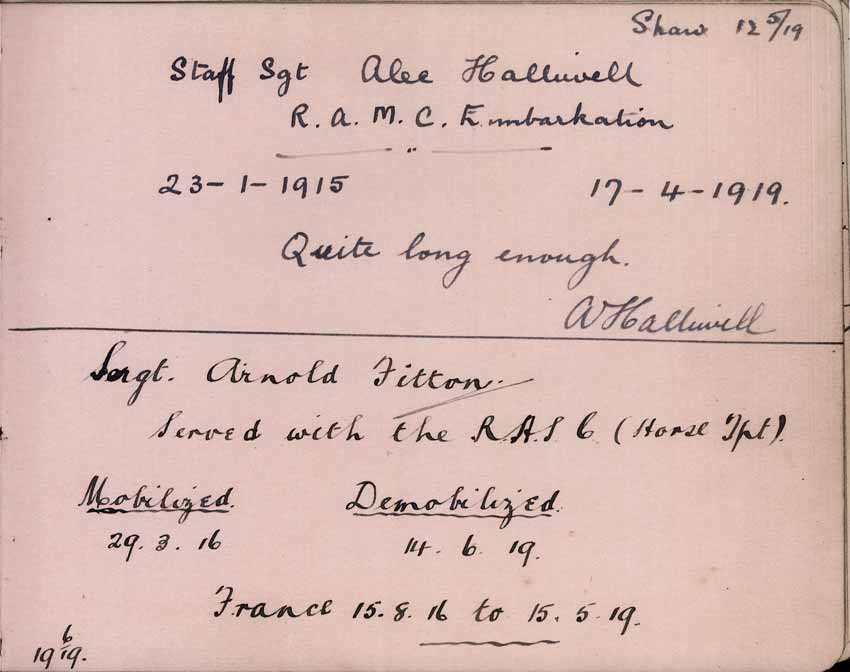 Shaw 12 5/19
Staff Sgt Alec Halliwell
R. A. M. C. Embarkation
"
23-1-1915 17-4-1919.
Quite long enough.
A Halliwell
Sergt. Arnold Fitton.
Served with the R.A.S C (Horse Tpt).
Mobilized. Demobilized.
29. 3. 16 14. 6. 19.
France 15. 8. 16 to 15. 5. 19.
19 6/19.